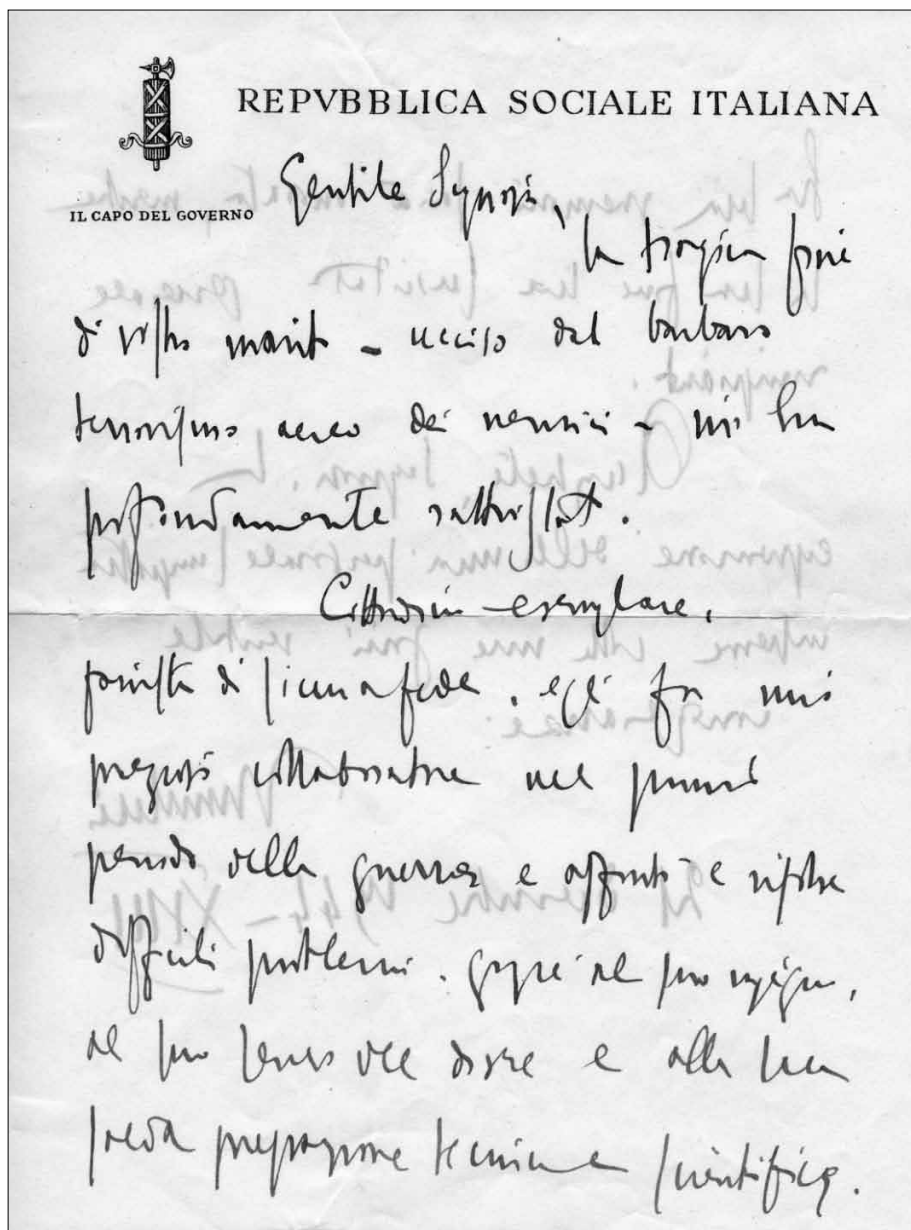 REPVBBLICA SOCIALE ITALIANA
IL CAPO DEL GOVERNO
Gentile Signora,
la tragica fine
di vostro marito - ucciso dal barbaro
terrorismo aereo dei nemici - mi ha
profondamente rattristato.
Cittadino esemplare,
fascista di sicura fede, egli fu mio
prezioso collaboratore nel primo
periodo della guerra e affrontò e risolse
difficili problemi, grazie al suo ingegno,
al suo senso del dovere e alla sua
salda preparazione tecnica e scientifica.